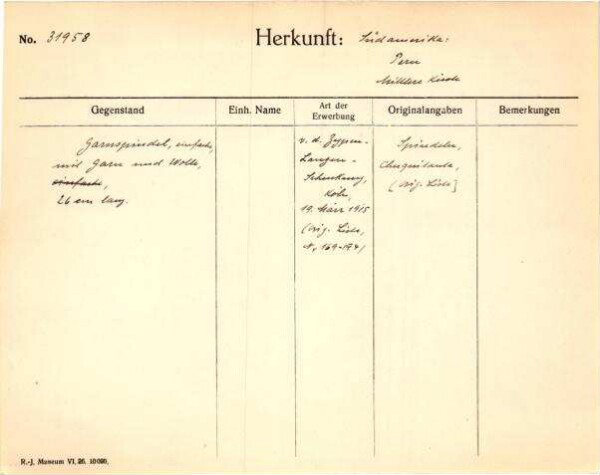 No. 31958
Herkunft: Südamerika:
Peru
Mittlere Küste
Gegenstand
Einh. Name
Art der
Erwerbung
Originalangaben
Bemerkungen
Garnspindel, einfache,
mit Garn und Wolle,
einfache,
26 cm lang.
v. d. Zypen-
Langen-
Schenkung,
Köln,
19. März 1915
(Orig. Liste,
N. 169-174)
Spindeln,
Chuquitanta,
(Orig. Liste]
R.-J. Museum VI. 26. 10000.